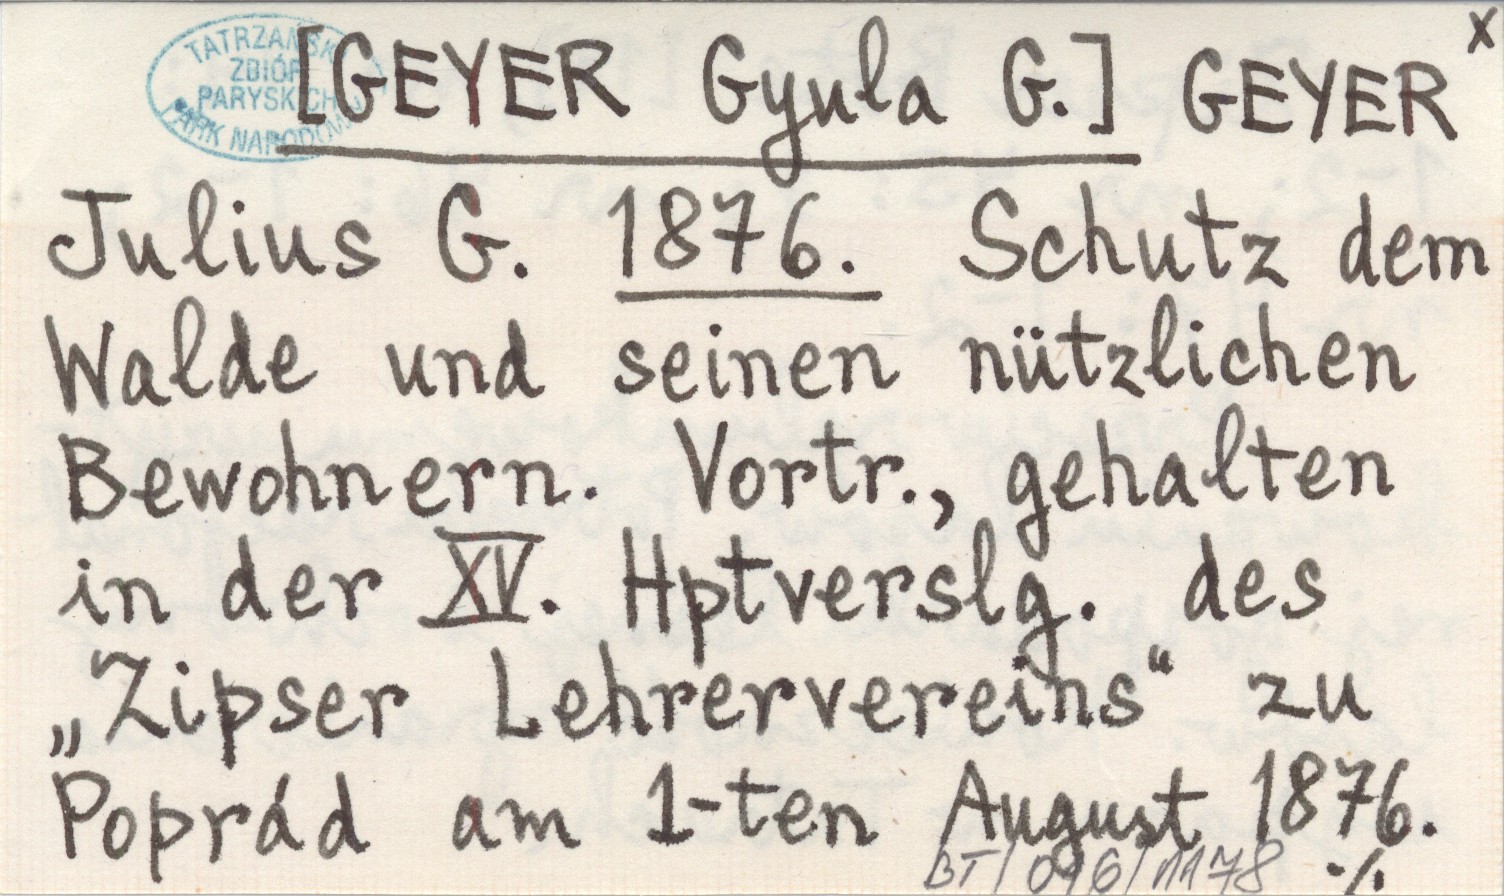 TATRZAŃSKI
ZBIÓR
PARYSKICH
PARK NARODOWY
[GEYER Gyula G.] GEYER x
Julius G. 1876. Schutz dem
Walde und seinen nützlichen
Bewohnern. Vortr., gehalten
in der XV. Hptverslg. des
„Zipser Lehrervereins“ zu
Poprád am 1-ten August 1876.
BT/096/1178 ·/.